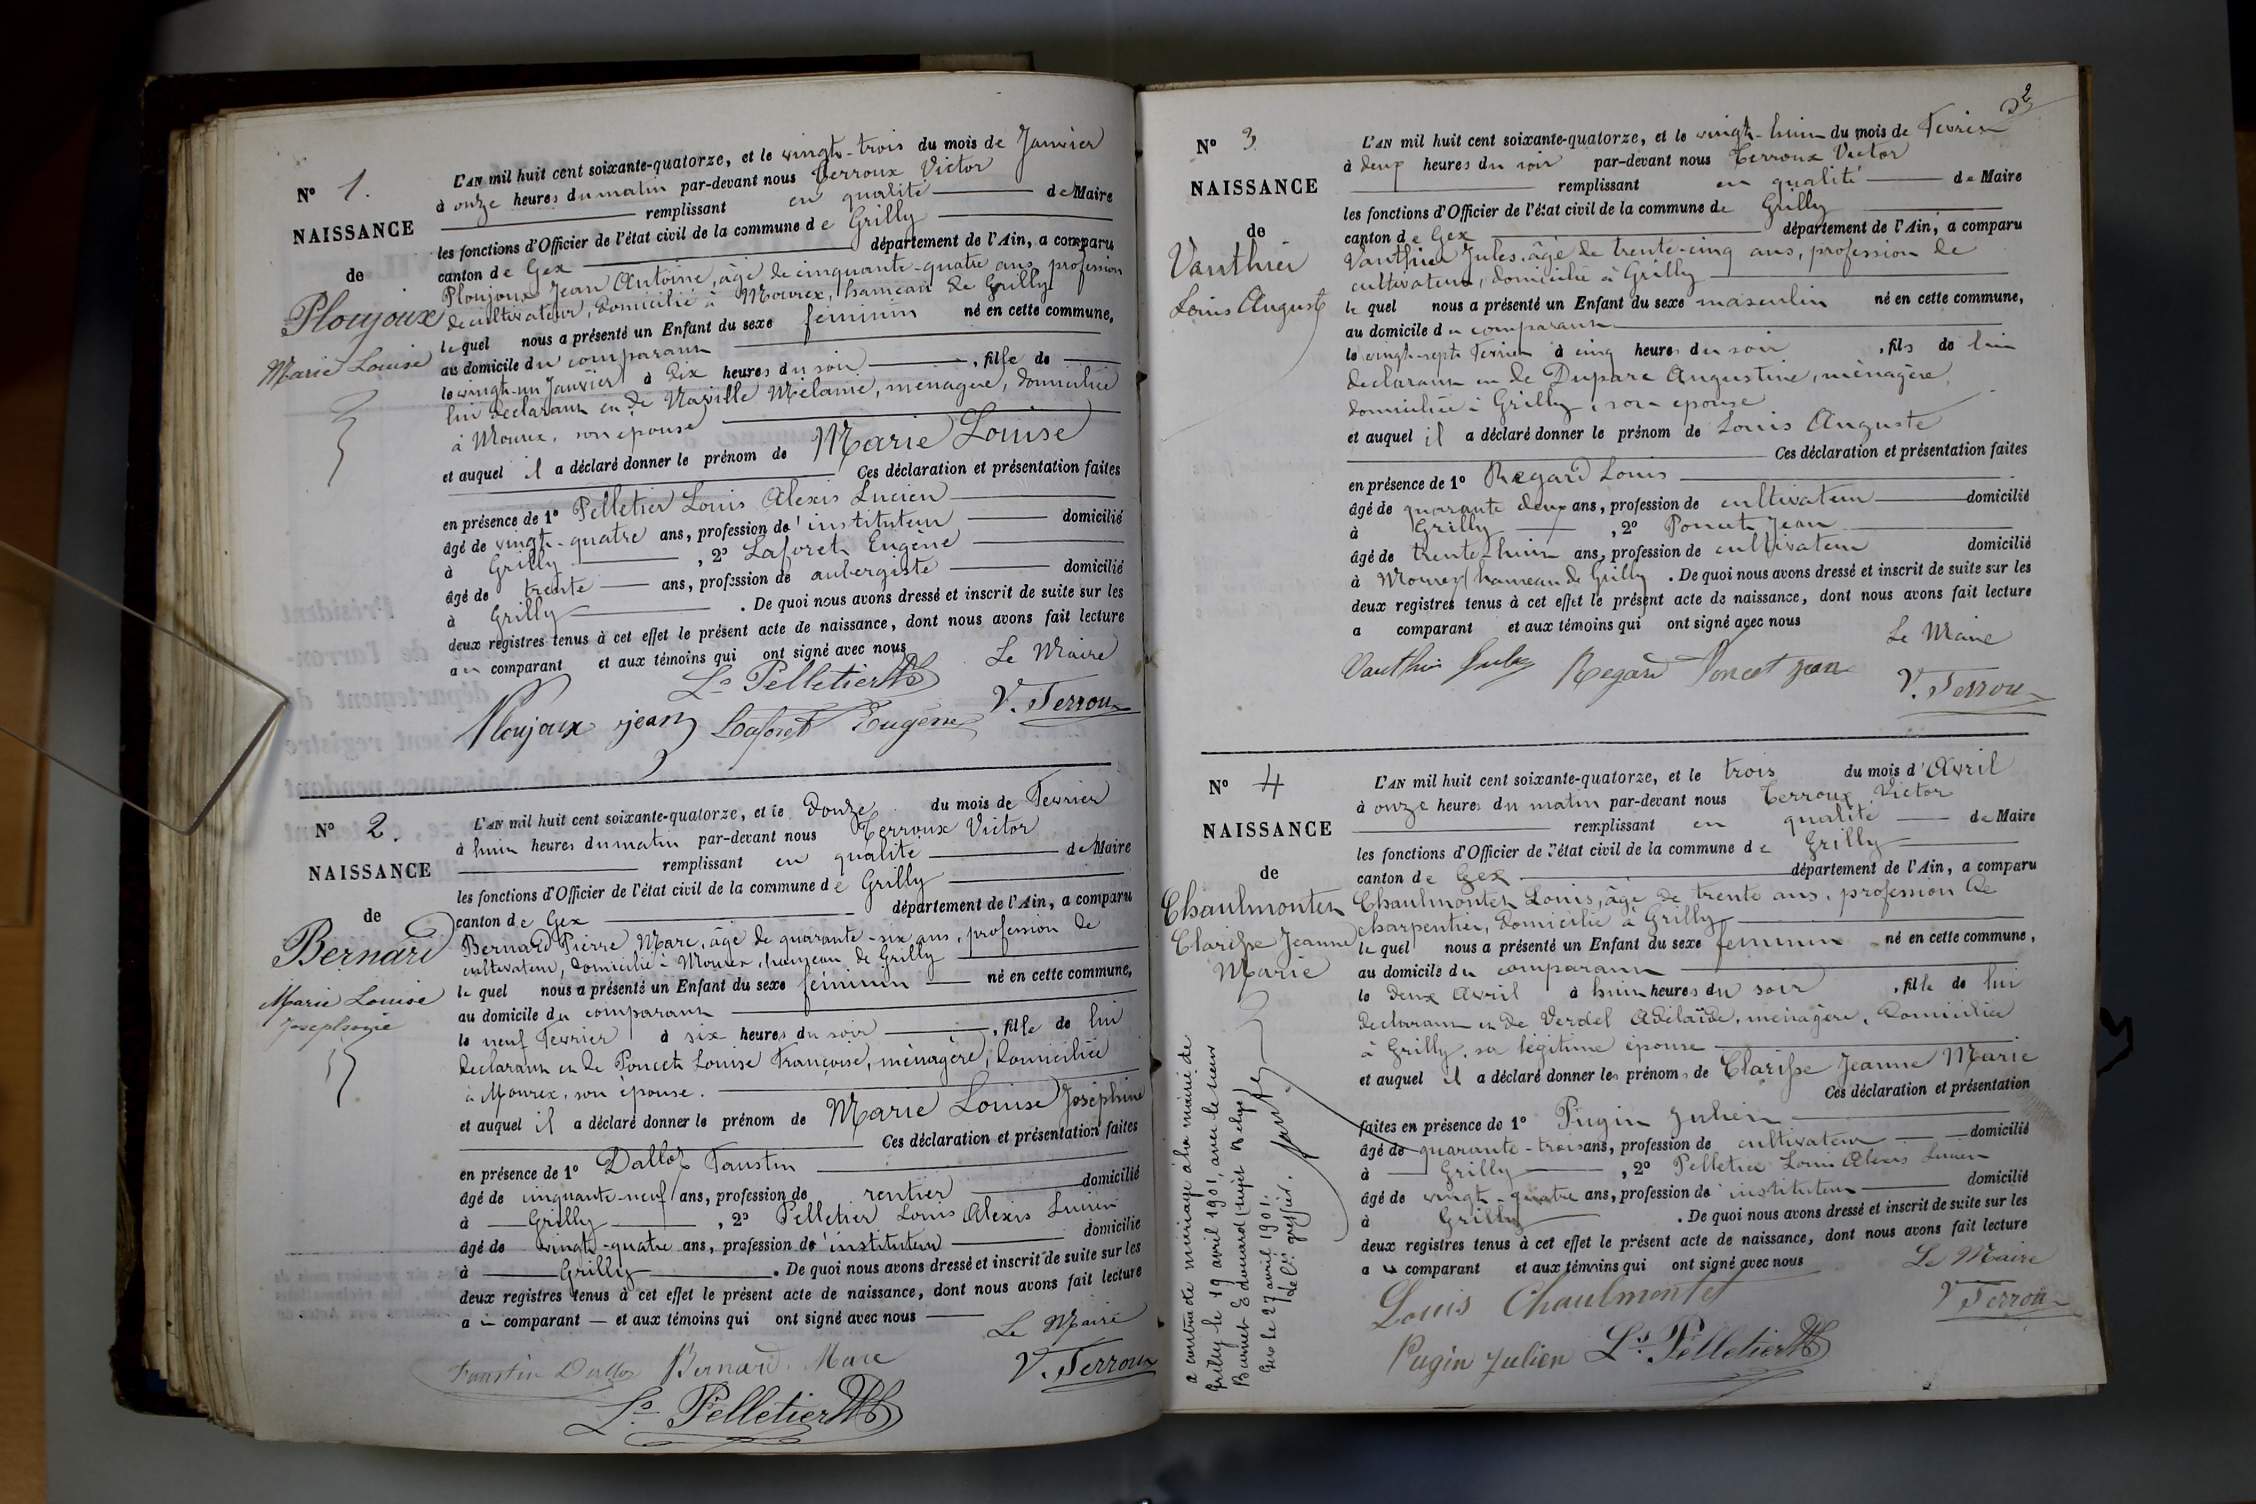 N° 1.
NAISSANCE
de
Ploujoux
Marie Louise
L'AN mil huit cent soixante-quatorze, et le vingt-trois du mois de Janvier
à onze heures du matin par-devant nous Terroux Victor
remplissant en qualité de Maire
les fonctions d'Officier de l'état civil de la commune de Grilly
canton de Gex département de l'Ain, a comparu
Ploujoux Jean Antoine, âgé de cinquante-quatre ans, profession
de cultivateur, domicilié à Mourex, hameau de Grilly
lequel nous a présenté un Enfant du sexe féminin né en cette commune,
au domicile du comparant
le vingt-un Janvier à dix heures du soir, fille de
lui déclarant et de Naville Mélanie, ménagère, domiciliée
à Mourex, son épouse
et auquel il a déclaré donner le prénom de Marie Louise
Ces déclaration et présentation faites
en présence de 1° Pelletier Louis Alexis Lucien
âgé de vingt-quatre ans, profession d'instituteur domicilié
à Grilly, 2° Laforet Eugène
âgé de trente ans, profession de aubergiste domicilié
à Grilly. De quoi nous avons dressé et inscrit de suite sur les
deux registres tenus à cet effet le présent acte de naissance, dont nous avons fait lecture
au comparant et aux témoins qui ont signé avec nous
Le Maire
Ls Pelletier
V. Terroux
Ploujoux jean Laforet Eugène
N° 2.
NAISSANCE
de
Bernard
Marie Louise
Josephine
L'AN mil huit cent soixante-quatorze, et le Douze du mois de Fevrier
à huit heures du matin par-devant nous Terroux Victor
remplissant en qualité de Maire
les fonctions d'Officier de l'état civil de la commune de Grilly
canton de Gex département de l'Ain, a comparu
Bernard Pierre Marc, âgé de quarante-six ans, profession de
cultivateur, domicilié à Mourex, hameau de Grilly
lequel nous a présenté un Enfant du sexe féminin né en cette commune,
au domicile du comparant
le neuf Fevrier à six heures du soir, fille de lui
déclarant et de Poncet Louise Françoise, ménagère, domiciliée
à Mourex, son épouse.
et auquel il a déclaré donner le prénom de Marie Louise Joséphine
Ces déclaration et présentation faites
en présence de 1° Dalloz Faustin
âgé de cinquante-neuf ans, profession de rentier domicilié
à Grilly, 2° Pelletier Louis Alexis Lucien
âgé de vingt-quatre ans, profession d'instituteur domicilié
à Grilly. De quoi nous avons dressé et inscrit de suite sur les
deux registres tenus à cet effet le présent acte de naissance, dont nous avons fait lecture
au comparant et aux témoins qui ont signé avec nous
Le Maire
Faustin Dalloz Bernard Marc V. Terroux
Ls Pelletier
2
N° 3
NAISSANCE
de
Vauthier
Louis Auguste
L'AN mil huit cent soixante-quatorze, et le vingt-huit du mois de Fevrier
à deux heures du soir par-devant nous Terroux Victor
remplissant en qualité de Maire
les fonctions d'Officier de l'état civil de la commune de Grilly
canton de Gex département de l'Ain, a comparu
Vauthier Jules, âgé de trente-cinq ans, profession de
cultivateur, domicilié à Grilly
lequel nous a présenté un Enfant du sexe masculin né en cette commune,
au domicile du comparant
le vingt-sept Fevrier à cinq heures du soir, fils de lui
declarant et de Duparc Augustine, ménagère,
domiciliée à Grilly, son epouse
et auquel il a déclaré donner le prénom de Louis Auguste
Ces déclaration et présentation faites
en présence de 1° Regard Louis
âgé de quarante deux ans, profession de cultivateur domicilié
à Grilly, 2° Poncet Jean
âgé de trente-huit ans, profession de cultivateur domicilié
à Mourex hameau de Grilly. De quoi nous avons dressé et inscrit de suite sur les
deux registres tenus à cet effet le présent acte de naissance, dont nous avons fait lecture
a comparant et aux témoins qui ont signé avec nous
Le Maire
Vauthier Jules Regard Poncet jean
V. Terroux
N° 4
NAISSANCE
de
Chaulmontet
Clarisse Jeanne
Marie
L'AN mil huit cent soixante-quatorze, et le trois du mois d'Avril
à onze heures du matin par-devant nous Terroux Victor
remplissant en qualité de Maire
les fonctions d'Officier de l'état civil de la commune de Grilly
canton de Gex département de l'Ain, a comparu
Chaulmontet Louis, âgé de trente ans, profession de
charpentier, domicilié à Grilly
lequel nous a présenté un Enfant du sexe feminin né en cette commune,
au domicile du comparant
le deux Avril à huit heures du soir, fille de lui
declarant et de Verdel Adélaïde, ménagère, domiciliée
à Grilly, sa légitime épouse
et auquel il a déclaré donner les prénoms de Clarisse Jeanne Marie
Ces déclaration et présentation
faites en présence de 1° Pugin Julien
âgé de quarante-trois ans, profession de cultivateur domicilié
à Grilly, 2° Pelletier Louis Alexis Lucien
âgé de vingt-quatre ans, profession d'instituteur domicilié
à Grilly. De quoi nous avons dressé et inscrit de suite sur les
deux registres tenus à cet effet le présent acte de naissance, dont nous avons fait lecture
au comparant et aux témoins qui ont signé avec nous
Le Maire
Louis Chaulmontet V Terroux
Pugin Julien Ls Pelletier
a contracté mariage à la mairie de
Grilly le 19 avril 1901, avec le sieur
Burnet Edouard (sujet Belge)
Gex le 27 avril 1901.
greffier.